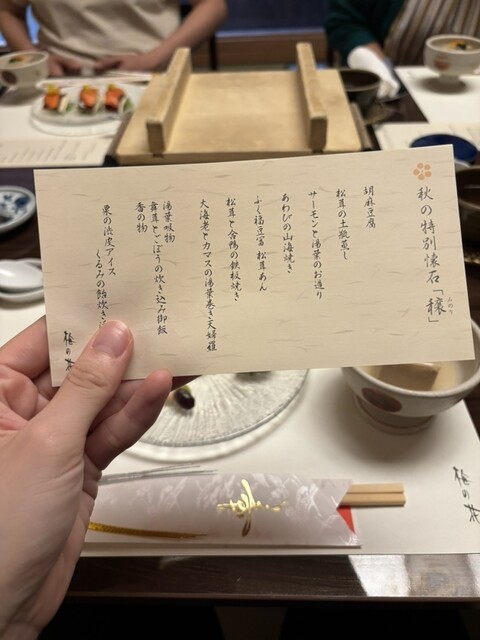 秋の特別懐石「穣」
みのり
胡麻豆腐
松茸の土瓶蒸し
サーモンと湯葉のお造り
あわびの山海焼き
ふく福豆富 松茸あん
松茸と合鴨の鉄板焼き
大海老とカマスの湯葉巻き天婦羅
湯葉吸物
舞茸とごぼうの炊き込み御飯
香の物
栗の渋皮アイス
くるみの飴炊き
梅の花
梅の花